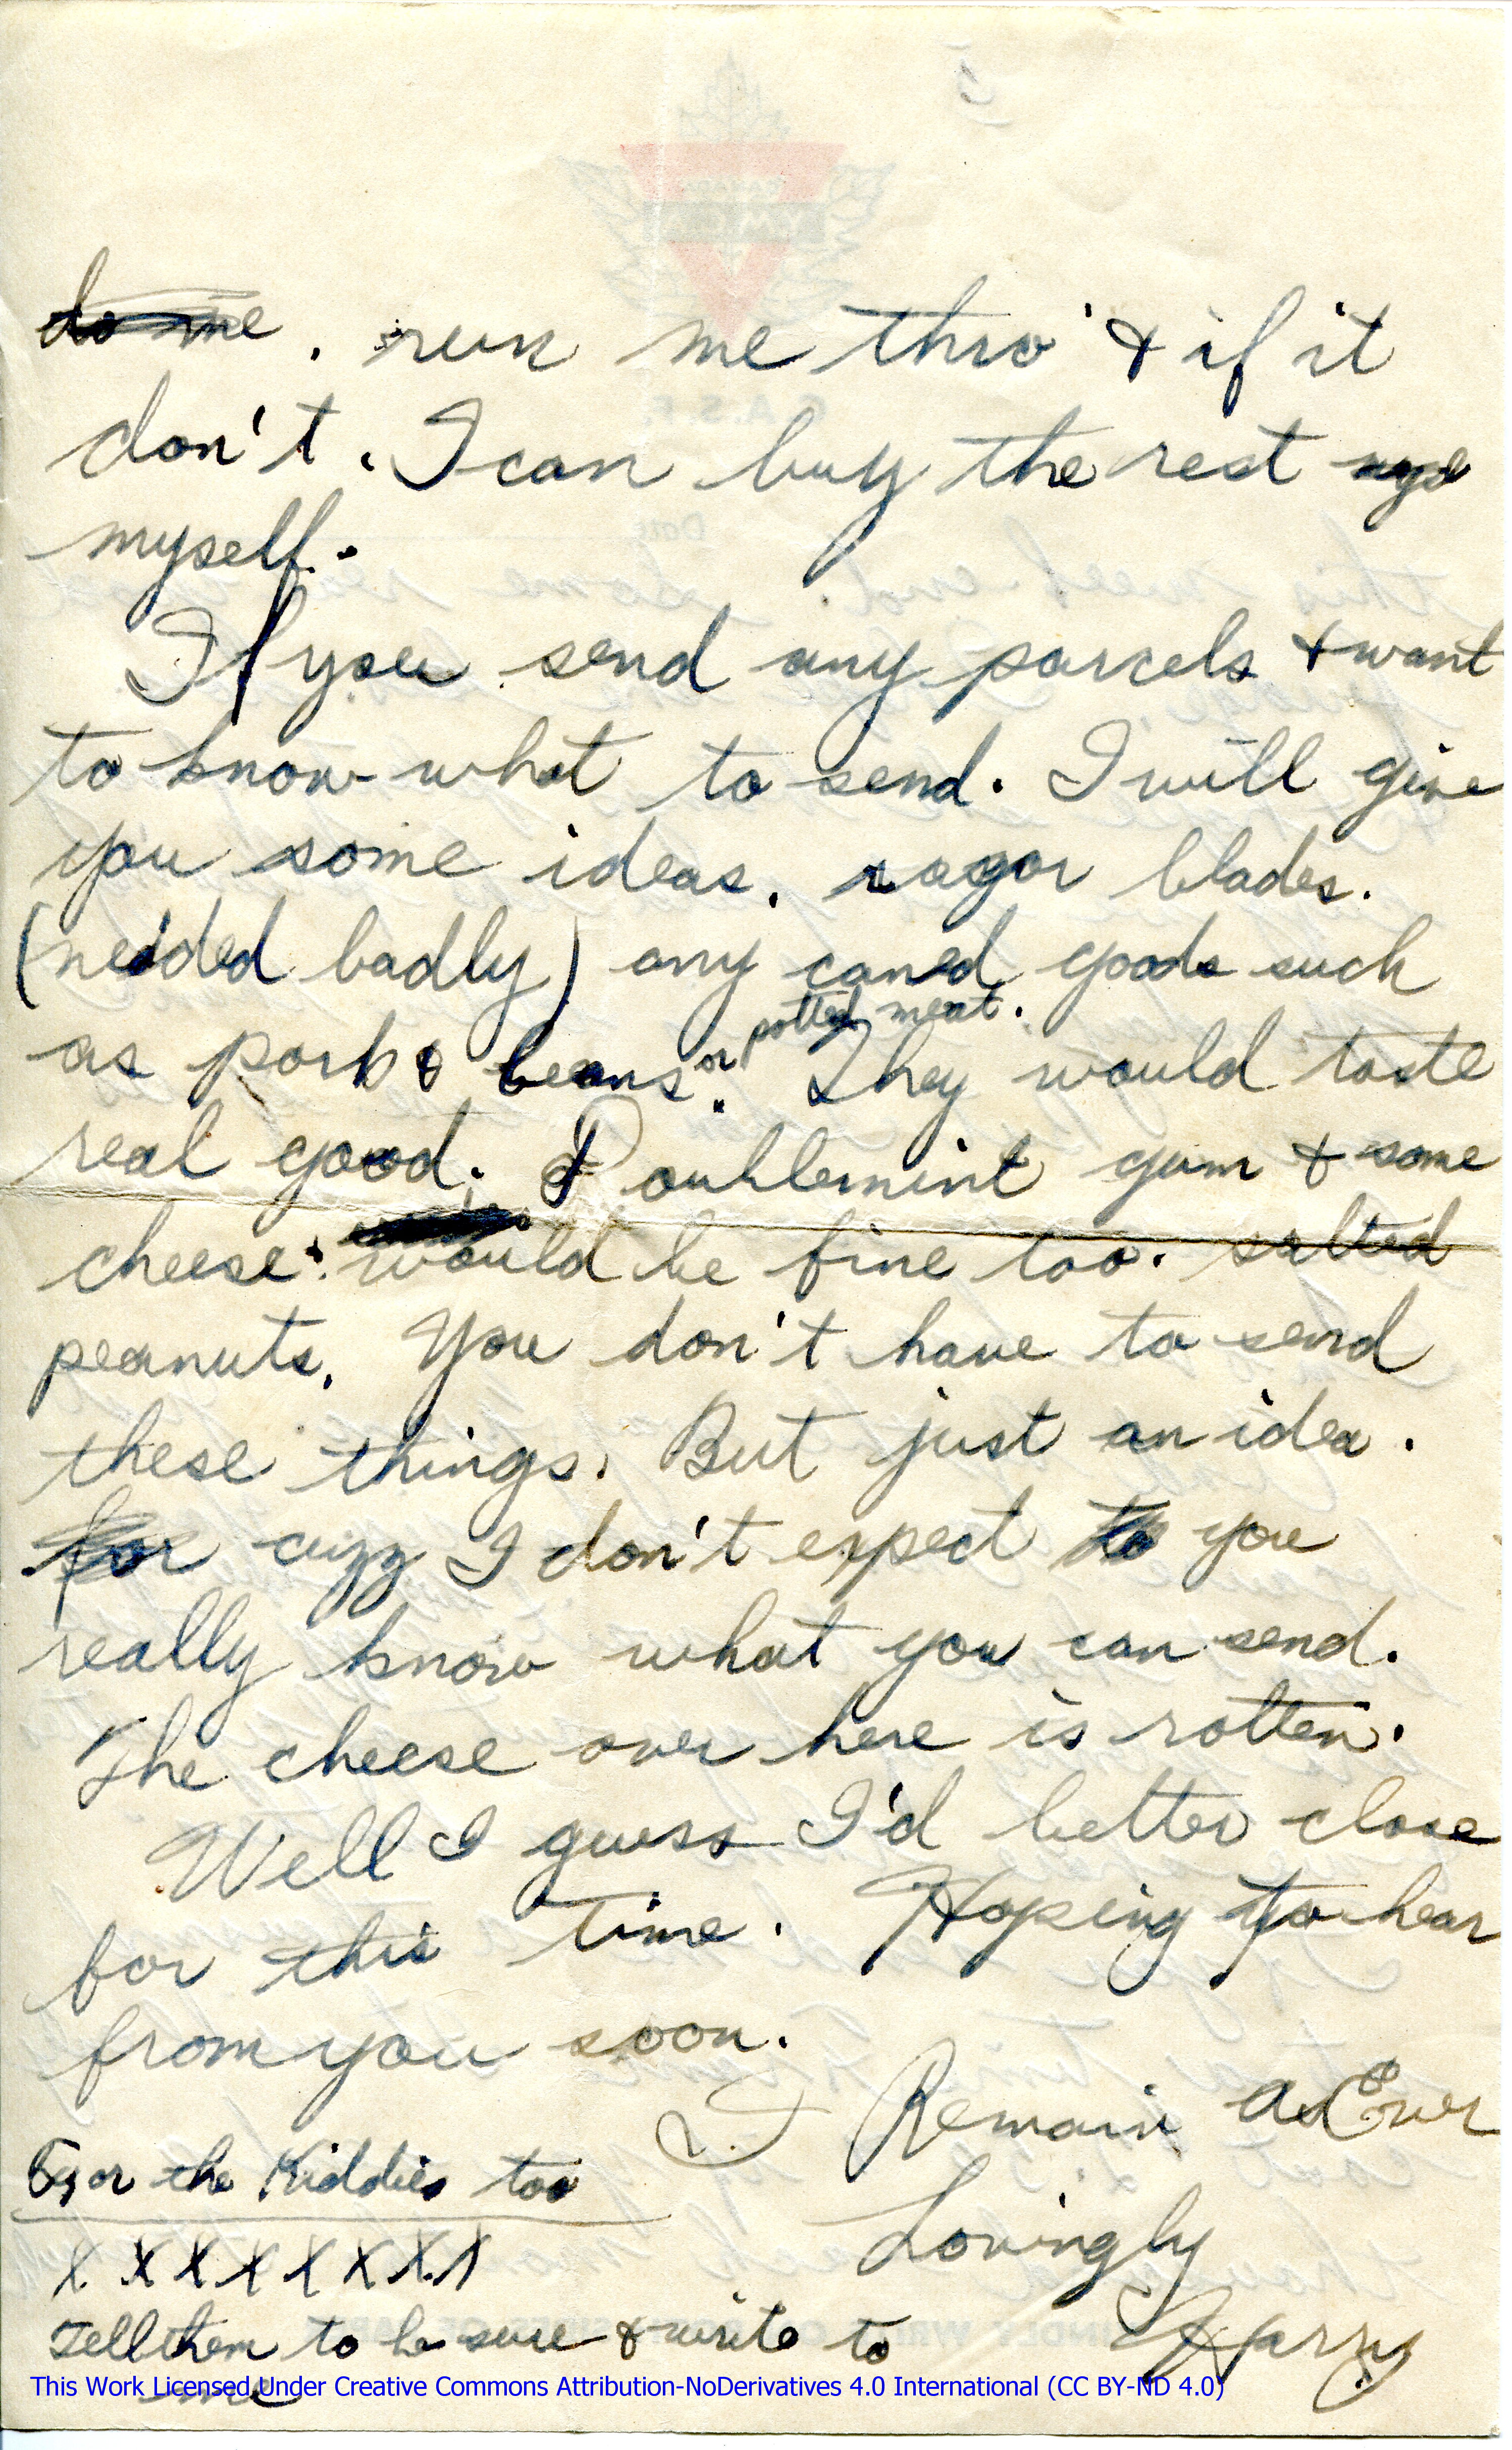 do me. run me thro' & if it
don't. I can buy the rest
myself.
If you send any parcels & want
to know what to send. I will give
you some ideas. razor blades.
(nedded badly) any caned goods such
as pork & beans or potted meat. They would taste
real good. Doublemint gum & some
cheese. would be fine too. salted
peanuts. You don't have to send
these things. But just an idea.
for cuzz I don't expect to you
really know what you can send.
The cheese over here is rotten.
Well I guess I'd better close
for this time. Hoping to hear
from you soon.
I Remain As Ever
Lovingly
Harry
For the Kiddies too
X X X X X X X X
Tell them to be sure & write to
me
This Work Licensed Under Creative Commons Attribution-NoDerivatives 4.0 International (CC BY-ND 4.0)